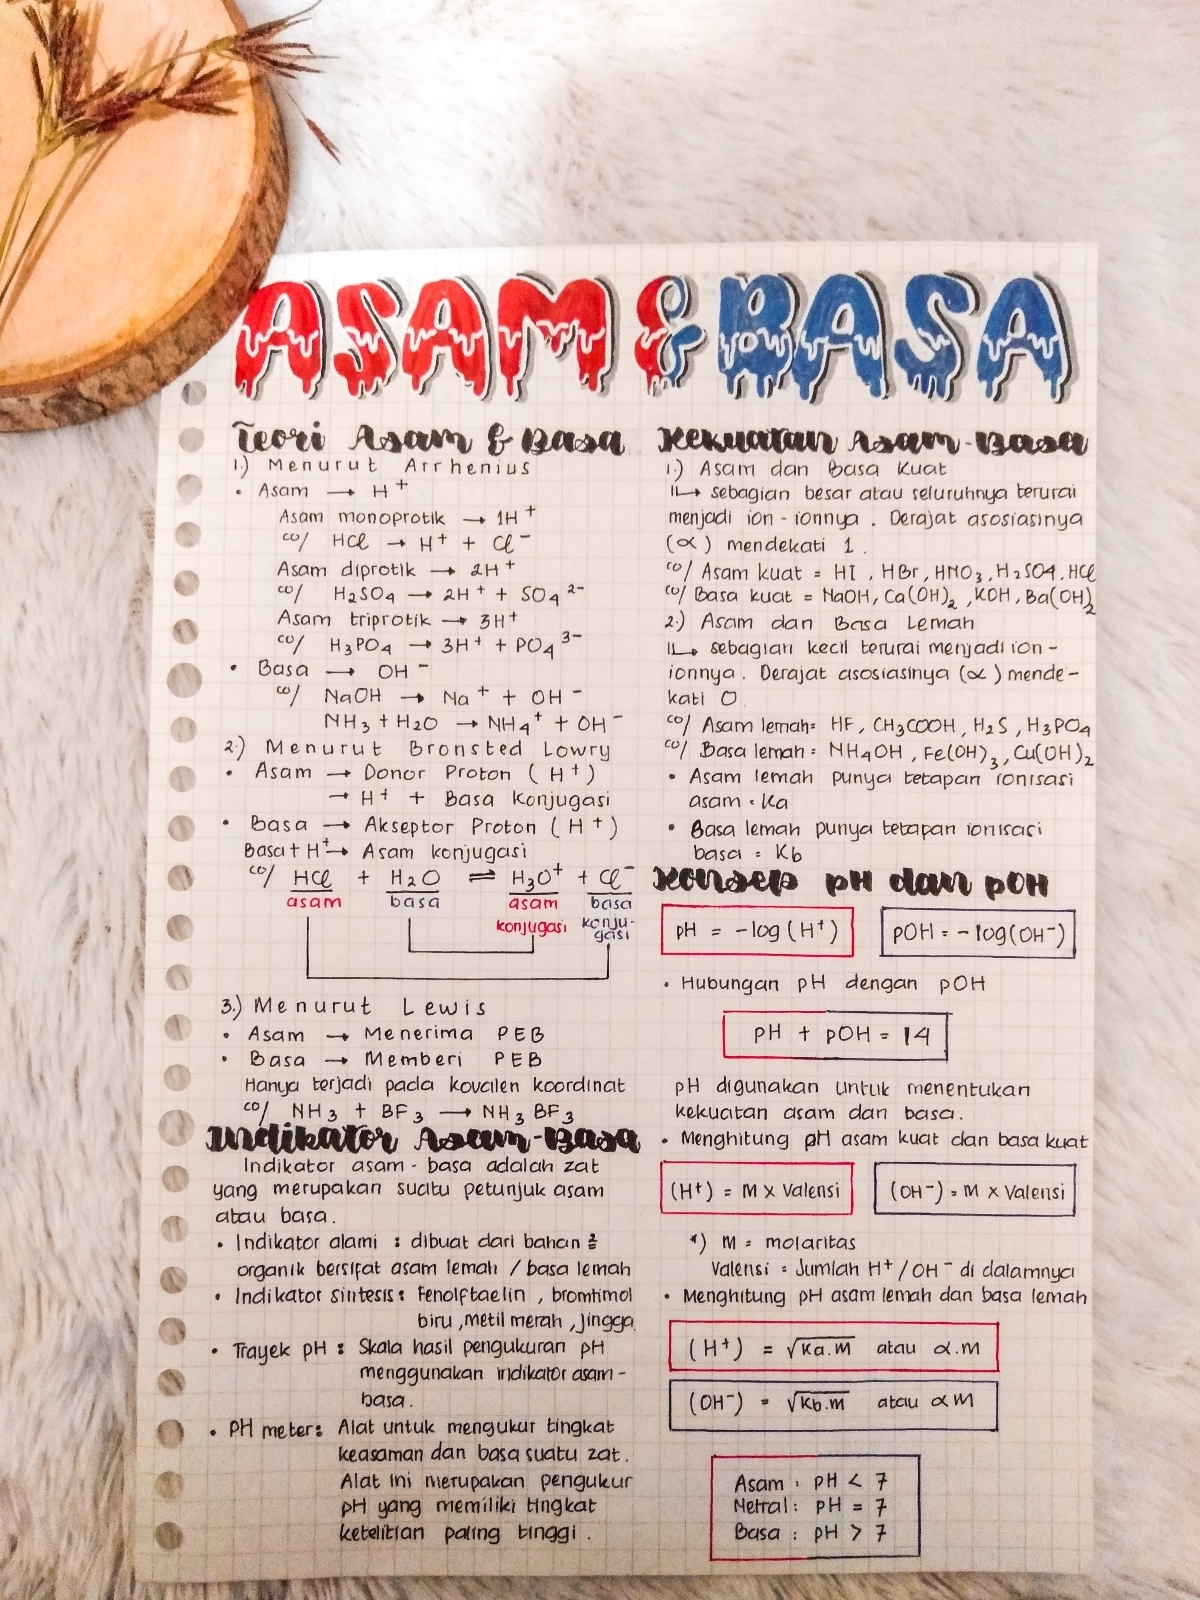 ASAM & BASA
Teori Asam & Basa
1.) Menurut Arrhenius
• Asam → H⁺
Asam monoprotik → 1H⁺
co/ HCl → H⁺ + Cl⁻
Asam diprotik → 2H⁺
co/ H₂SO₄ → 2H⁺ + SO₄²⁻
Asam triprotik → 3H⁺
co/ H₃PO₄ → 3H⁺ + PO₄³⁻
• Basa → OH⁻
co/ NaOH → Na⁺ + OH⁻
NH₃ + H₂O → NH₄⁺ + OH⁻
2.) Menurut Bronsted Lowry
• Asam → Donor Proton (H⁺)
→ H⁺ + Basa Konjugasi
• Basa → Akseptor Proton (H⁺)
Basa + H⁺ → Asam konjugasi
co/ HCl + H₂O ⇌ H₃O⁺ + Cl⁻
asam basa asam basa
konjugasi konju-
gasi
3.) Menurut Lewis
• Asam → Menerima PEB
• Basa → Memberi PEB
Hanya terjadi pada kovalen koordinat
co/ NH₃ + BF₃ → NH₃BF₃
Indikator Asam-Basa
Indikator asam-basa adalah zat
yang merupakan suatu petunjuk asam
atau basa.
• Indikator alami : dibuat dari bahan ²
organik bersifat asam lemah / basa lemah
• Indikator sintesis : Fenolftaelin, bromtimol
biru, metil merah, jingga
• Trayek pH : Skala hasil pengukuran pH
menggunakan indikator asam-
basa.
• PH meter : Alat untuk mengukur tingkat
keasaman dan basa suatu zat.
Alat ini merupakan pengukur
pH yang memiliki tingkat
ketelitian paling tinggi.
Kekuatan Asam-Basa
1.) Asam dan Basa Kuat
↳ sebagian besar atau seluruhnya terurai
menjadi ion-ionnya. Derajat asosiasinya
(α) mendekati 1.
co/ Asam kuat = HI, HBr, HNO₃, H₂SO₄, HCl
co/ Basa kuat = NaOH, Ca(OH)₂, KOH, Ba(OH)₂
2.) Asam dan Basa Lemah
↳ sebagian kecil terurai menjadi ion-
ionnya. Derajat asosiasinya (α) mende-
kati 0
co/ Asam lemah = HF, CH₃COOH, H₂S, H₃PO₄
co/ Basa lemah = NH₄OH, Fe(OH)₃, Cu(OH)₂
• Asam lemah punya tetapan ionisasi
asam = Ka
• Basa lemah punya tetapan ionisasi
basa = Kb
Konsep pH dan pOH
pH = -log (H⁺) pOH = -log(OH⁻)
• Hubungan pH dengan pOH
pH + pOH = 14
pH digunakan untuk menentukan
kekuatan asam dan basa.
• Menghitung pH asam kuat dan basa kuat
(H⁺) = M x Valensi (OH⁻) = M x Valensi
*) M = molaritas
Valensi = Jumlah H⁺/OH⁻ di dalamnya
• Menghitung pH asam lemah dan basa lemah
(H⁺) = √Ka.M atau α.M
(OH⁻) = √Kb.M atau αM
Asam : pH < 7
Netral : pH = 7
Basa : pH > 7